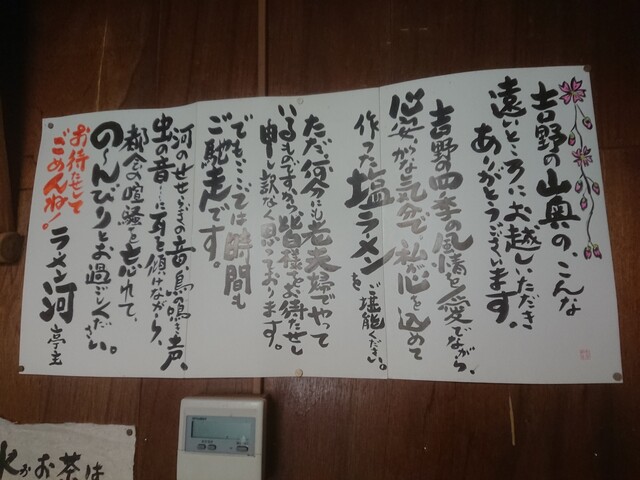 吉野の山奥の、こんな
遠いところにお越しいただき
ありがとうございます。
吉野の四季の風情を愛でながら、
心安らかな気分で、私が心を込めて
作った塩ラーメンをご堪能ください。
ただ、何分にも老夫婦でやって
いるものですから皆様をお待たせし
申し訳なく思っております。
でも…ここでは時間も
ご馳走です。
河のせせらぎの音、鳥の鳴き声、
虫の音…に耳を傾けながら、
都会の喧騒を忘れて、
の〜んびりとお過ごしください。
お待たせして
ごめんね!
ラーメン河 亭主
水やお茶は